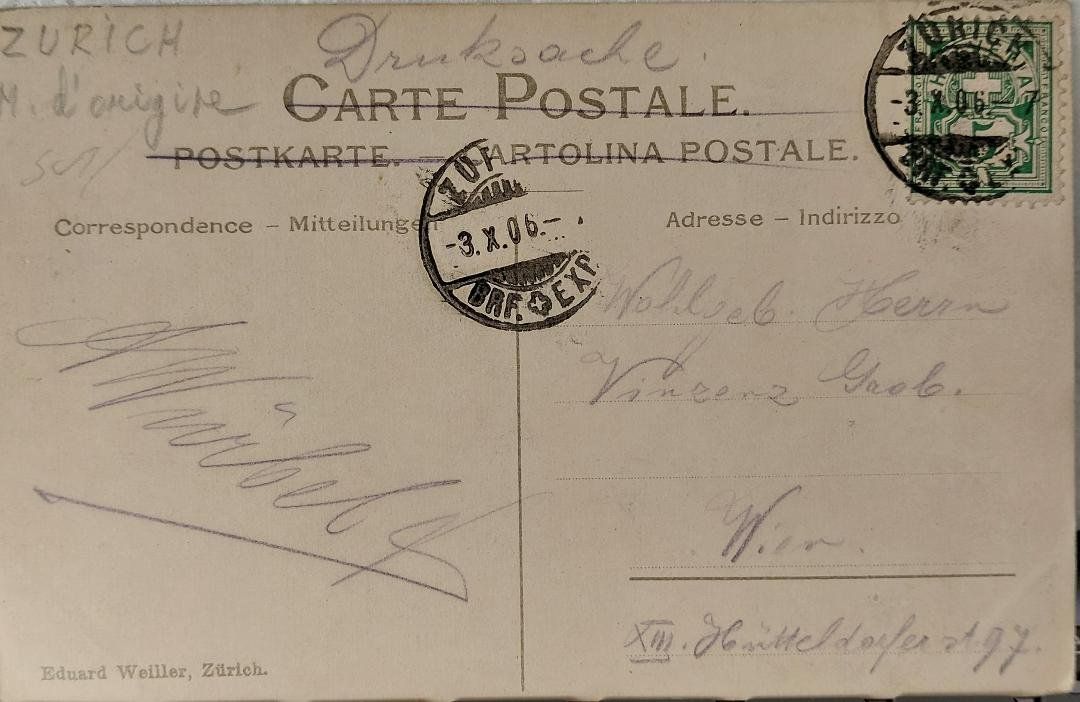 ZURICH
M. d'origine
Druksache.
CARTE POSTALE.
POSTKARTE. – CARTOLINA POSTALE.
ZÜRICH
-3.X.06.-7
ZÜR
-3.X.06.-
BRF. EXP.
Correspondence – Mitteilungen
Adresse – Indirizzo
Wohlgeb. Herrn
Vinzenz Grob.
Wien.
XIII. Hütteldorferst 97.
Eduard Weiller, Zürich.